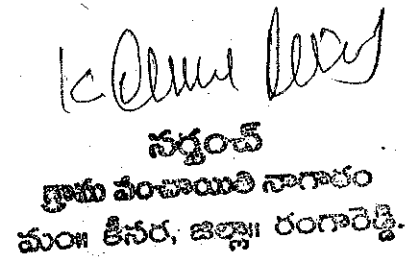 సర్పంచ్
గ్రామ పంచాయితి నాగారం
మం॥ కీసర, జిల్లా॥ రంగారెడ్డి.